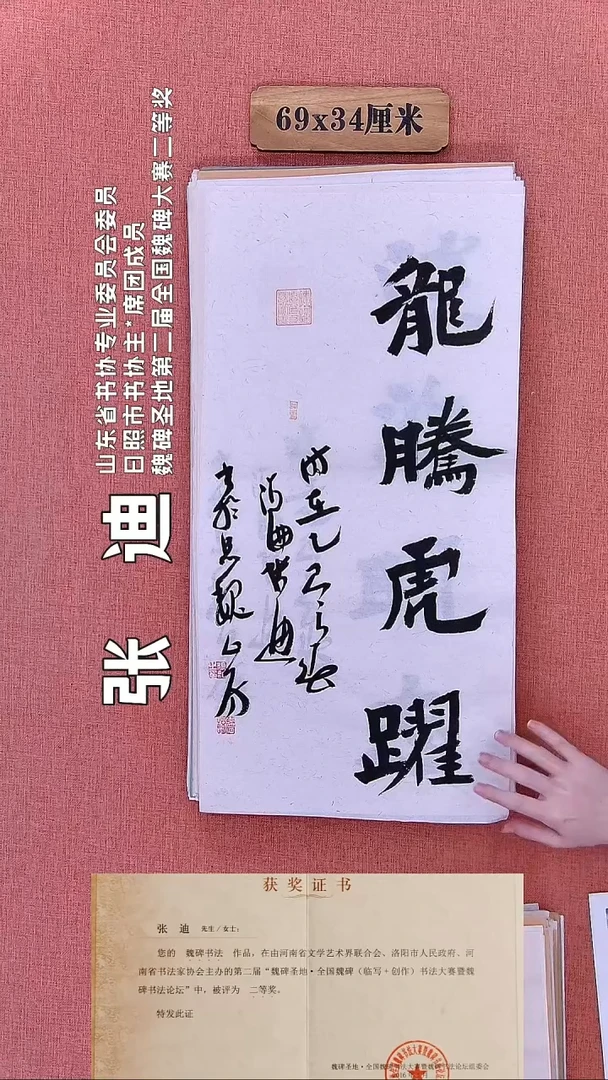 69x34厘米
山东省书协专业委员会委员
日照市书协主*席团成员
魏碑圣地第二届全国魏碑大赛二等奖
张 迪
龍騰虎躍
获奖证书
张 迪 先生/女士：
您的 魏碑书法 作品，在由河南省文学艺术界联合会、洛阳市人民政府、河
南省书法家协会主办的第二届“魏碑圣地·全国魏碑（临写+创作）书法大赛暨魏
碑书法论坛”中，被评为 二等奖。
特发此证
魏碑圣地·全国魏碑书法大赛暨魏碑书法论坛组委会